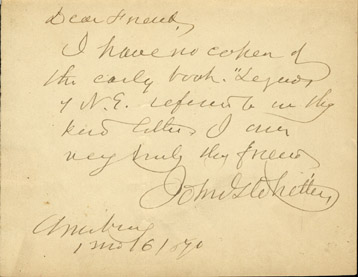 Dear Friend,
I have no copy of
the early book "Legends
of N.E. referred to in thy
kind letter. I am
very truly thy friend
John G Whittier
Amesbury
1 mo 6 1890